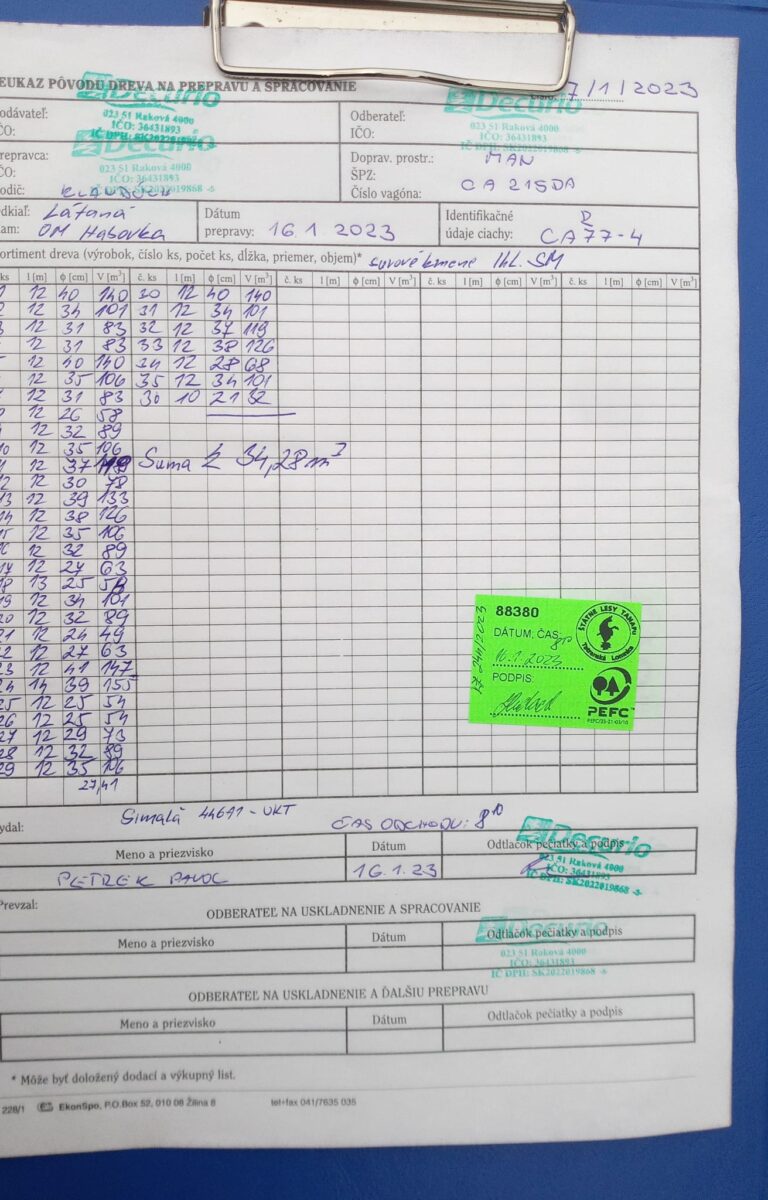 EUKAZ PÔVODU DREVA NA PREPRAVU A SPRACOVANIE
7/1/2023
Decurio
023 51 Raková 4000
IČO: 36431893
Decurio
023 51 Raková 4000
IČO: 36431893
IČ DPH: SK2022019868 -5
odávateľ:
ČO:
Odberateľ:
IČO:
repravca:
ČO:
odič:
Doprav. prostr.: MAN
ŠPZ:
Číslo vagóna: CA 215DA
dkiaľ: Látaná
am: OM Habovka
Dátum
prepravy: 16.1.2023
Identifikačné
údaje ciachy: CA77-4
ortiment dreva (výrobok, číslo ks, počet ks, dĺžka, priemer, objem)* surové kmene Ihl. SM
ks l [m] ϕ [cm] V [m³] č. ks l [m] ϕ [cm] V [m³] č. ks l [m] ϕ [cm] V [m³] č. ks l [m] ϕ [cm] V [m³] č. ks l [m] ϕ [cm] V [m³]
12 40 140 30 12 40 140
12 34 101 31 12 34 101
12 31 83 32 12 37 119
12 31 83 33 12 38 126
12 40 140 34 12 28 68
12 35 106 35 12 34 101
12 31 83 30 10 21 32
12 26 58
12 32 89
10 12 35 106
12 37 119 Suma Σ 34,28m³
12 12 30 78
13 12 39 133
14 12 38 126
15 12 35 106
16 12 32 89
17 12 27 63
18 13 25 58
19 12 34 101
20 12 32 89
21 12 24 49
22 12 27 63
23 12 41 147
24 14 39 155
25 12 25 54
26 12 25 54
27 12 29 73
28 12 32 89
29 12 35 106
27,41
88380
DÁTUM, ČAS
16.1.2023
PODPIS:
ŠTÁTNE LESY TANAPU
Tatranská Lomnica
PEFC
ydal:
ČAS ODCHODU: 8¹⁰
Meno a priezvisko Dátum Odtlačok pečiatky a podpis
PETREK PAVOL 16.1.23
Decurio
023 51 Raková 4000
IČO: 36431893
IČ DPH: SK2022019868 -5
Prevzal:
ODBERATEĽ NA USKLADNENIE A SPRACOVANIE
Meno a priezvisko Dátum Odtlačok pečiatky a podpis
Decurio
023 51 Raková 4000
IČO: 36431893
IČ DPH: SK2022019868 -5
ODBERATEĽ NA USKLADNENIE A ĎALŠIU PREPRAVU
Meno a priezvisko Dátum Odtlačok pečiatky a podpis
* Môže byť doložený dodací a výkupný list.
228/1 EkonSpo, P.O.Box 52, 010 08 Žilina 8 tel+fax 041/7635 035